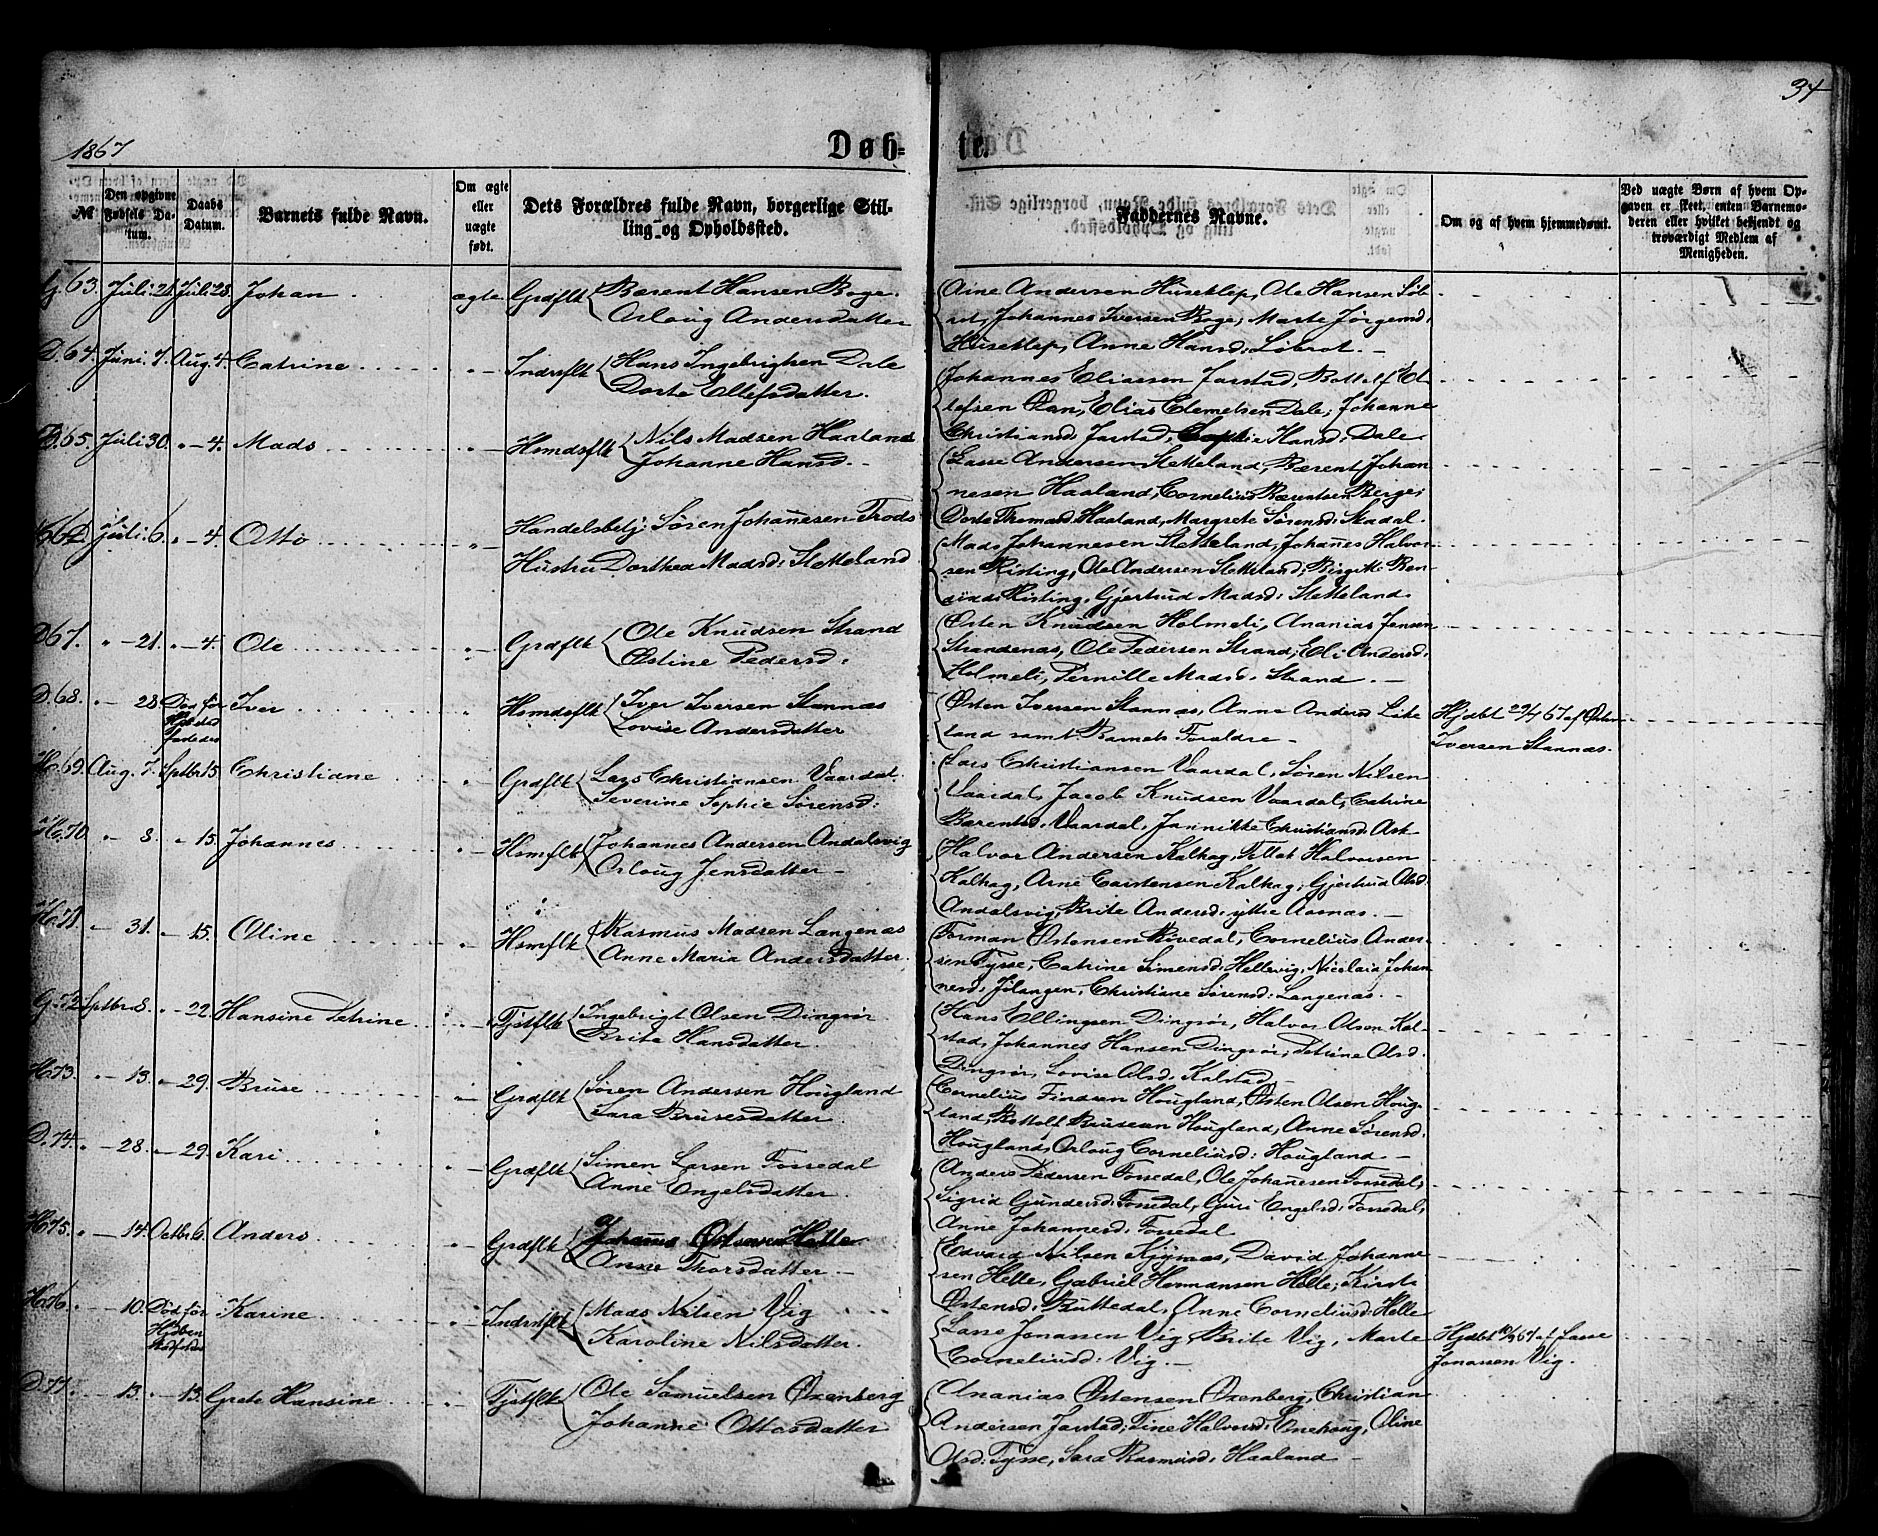 34
1867
Døb-
te.
№
Den opgivne Fødsels Da-tum.
Daabs Datum.
Barnets fulde Navn.
Om ægte eller uægte født.
Dets Forældres fulde Navn, borgerlige Stil-
ling og Opholdssted.
Faddernes Navne.
Om og af hvem hjemmedøbt.
Ved uægte Børn af hvem Op-
gaven er skeet, enten Barnemo-
deren eller hvilket bekjendt og
troværdigt Medlem af
Menigheden.
G. 63. Juli 21. Juli 28. Johan ægte Grdflk Bærent Hansen Boge.
Orloug Andersdatter
Arne Andersen Huseklep, Ole Hansen Løb-
rot, Johannes Iversen Boge, Marte Jørgensd:
Huseklep, Anne Hansd: Løbrot.
D. 64. Juni 7. Aug. 4. Catrine " Indrsflk Hans Ingebrigtsen Dale
Dorte Ellefsdatter.
Johannes Eliassen Jarstad, Bottolf El-
lefsen Øen, Elias Clemetsen Dale, Johanne
Christiansd: Jarstad, Sophie Hansd: Dale.
D. 65. Juli 30. " 4. Mads " Hsmdsflk Nils Madsen Haaland
Johanne Hansd.
Lasse Andersen Stetteland, Bærent Johan-
nesen Haaland, Cornelius Bærentsen Berge,
Dorte Thomasd: Haaland, Margrete Sørensd: Skadal.
Juli 6. " 4. Otto " Handelsbetj: Søren Johanesen Trods
Hustru Dorthea Madsd: Stetteland
Mads Johannesen Stetteland, Johanes Halvor-
sen Risting, Ole Andersen Stetteland, Birgitte
Risting, Gjertrud Madsd: Stetteland.
D 67. " 21. " 4. Ole " Grdflk Ole Knudsen Strand
Østine Pedersd:
Østen Knudsen Holmeli, Ananias Jensen
Strandenæs, Ole Pedersen Strand, Eli Andersd:
Holmeli, Pernille Madsd: Strand.
D. 68. " 28 Død før Iver " Hsmdsflk Iver Iversen Stannæs
Lovise Andersdatter
Østen Iversen Stannæs, Anne Andersd Like-
land samt Barnets Forældre
Hjdbt 29/7 67 af Østen
Iversen Stannæs.
H. 69. Aug. 7. Septbr 15. Christiane " Grdflk Lars Christiansen Vaardal.
Severine Sophie Sørensd:
Lars Christiansen Vaardal, Søren Nilsen
Vaardal, Jacob Knudsen Vaardal, Catrine
Bærentsd: Vaardal, Jannikke Christiansd: Ask-
H. 70. " 8. " 15. Johannes " Hsmflk Johannes Andersen Andalsvig
Orloug Jensdatter
Halvor Andersen Kalhag, Tollak Halvorsen
Kalhag, Arne Carstensen Kalhag, Gjertrud Olsd:
Andalsvig, Brite Andersd: ytre Aasnæs.
H. 71. " 31. " 15. Oline " Hsmflk Rasmus Madsen Langenæs
Anne Maria Andersdatter.
Forman Østensen Rivedal, Cornelius Ander-
sen Tysse, Catrine Simensd: Hellevig, Nicolaia Johan-
nesd: Jilangen, Christiane Sørensd: Langenæs.
G. 72 Septbr 8. " 22. Hansine Petrine " Tjstflk Ingebrigt Olsen Dingsør
Brite Hansdatter.
Hans Ellingsen Dingsør, Halvor Olsen Kal-
stad, Johannes Hansen Dingsør, Petrine Olsd.
Dingsør, Lovise Olsd: Kalstad
H. 73. " 13. " 29. Bruse " Grdflk Søren Andersen Hougland
Sara Brusesdatter.
Cornelius Findsen Hougland, Østen Olsen Houg-
land, Bottolf Brusesen Hougland, Anne Sørensd:
Hougland, Orloug Corneliusd: Hougland
D. 74. " 28. " 29. Kari " Grdflk Simen Larsen Fossedal
Anne Engelsdatter.
Anders Pedersen Fossedal, Ole Johanesen Fossedal,
Sigrid Gjundersd: Fossedal, Guri Engelsd: Fossedal,
Anne Johannesd: Fossedal
H. 75. " 14. Octbr 6. Anders " Grdflk Johanes Østensen Helle
Anne Thorsdatter
Edvard Nilsen Kjynæs, David Johanne-
sen Helle, Gabriel Hermansen Helle, Kirste
Østensd: Buttedal, Anne Corneliusd: Helle
H. 76. " 10. Død før Karine " Indrstflk Mads Nilsen Vig
Karoline Nilsdatter.
Lasse Jonassen Vig, Brite Vig, Marte
Corneliusd: Vig.
Hjdbt 10/9 67 af Lasse
Jonassen Vig.
D. 77. " 13. " 13. Grete Hansine " Tjstflk Ole Samuelsen Øxenberg
Johanne Ottosdatter
Ananias Østensen Øxenberg, Christian
Andersen Jarstad, Tine Halvorsd: Ønehoug, Oline
Olsd: Tysse, Sara Rasmusd: Haaland